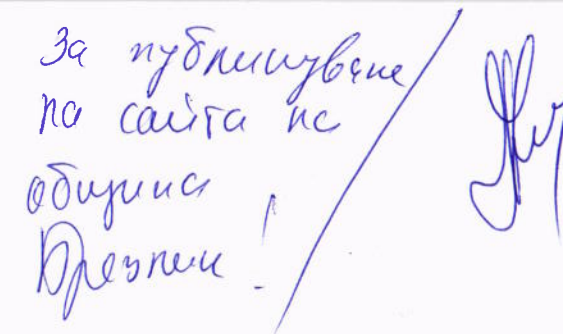 За публикуване
на сайта на
община
Брезник!